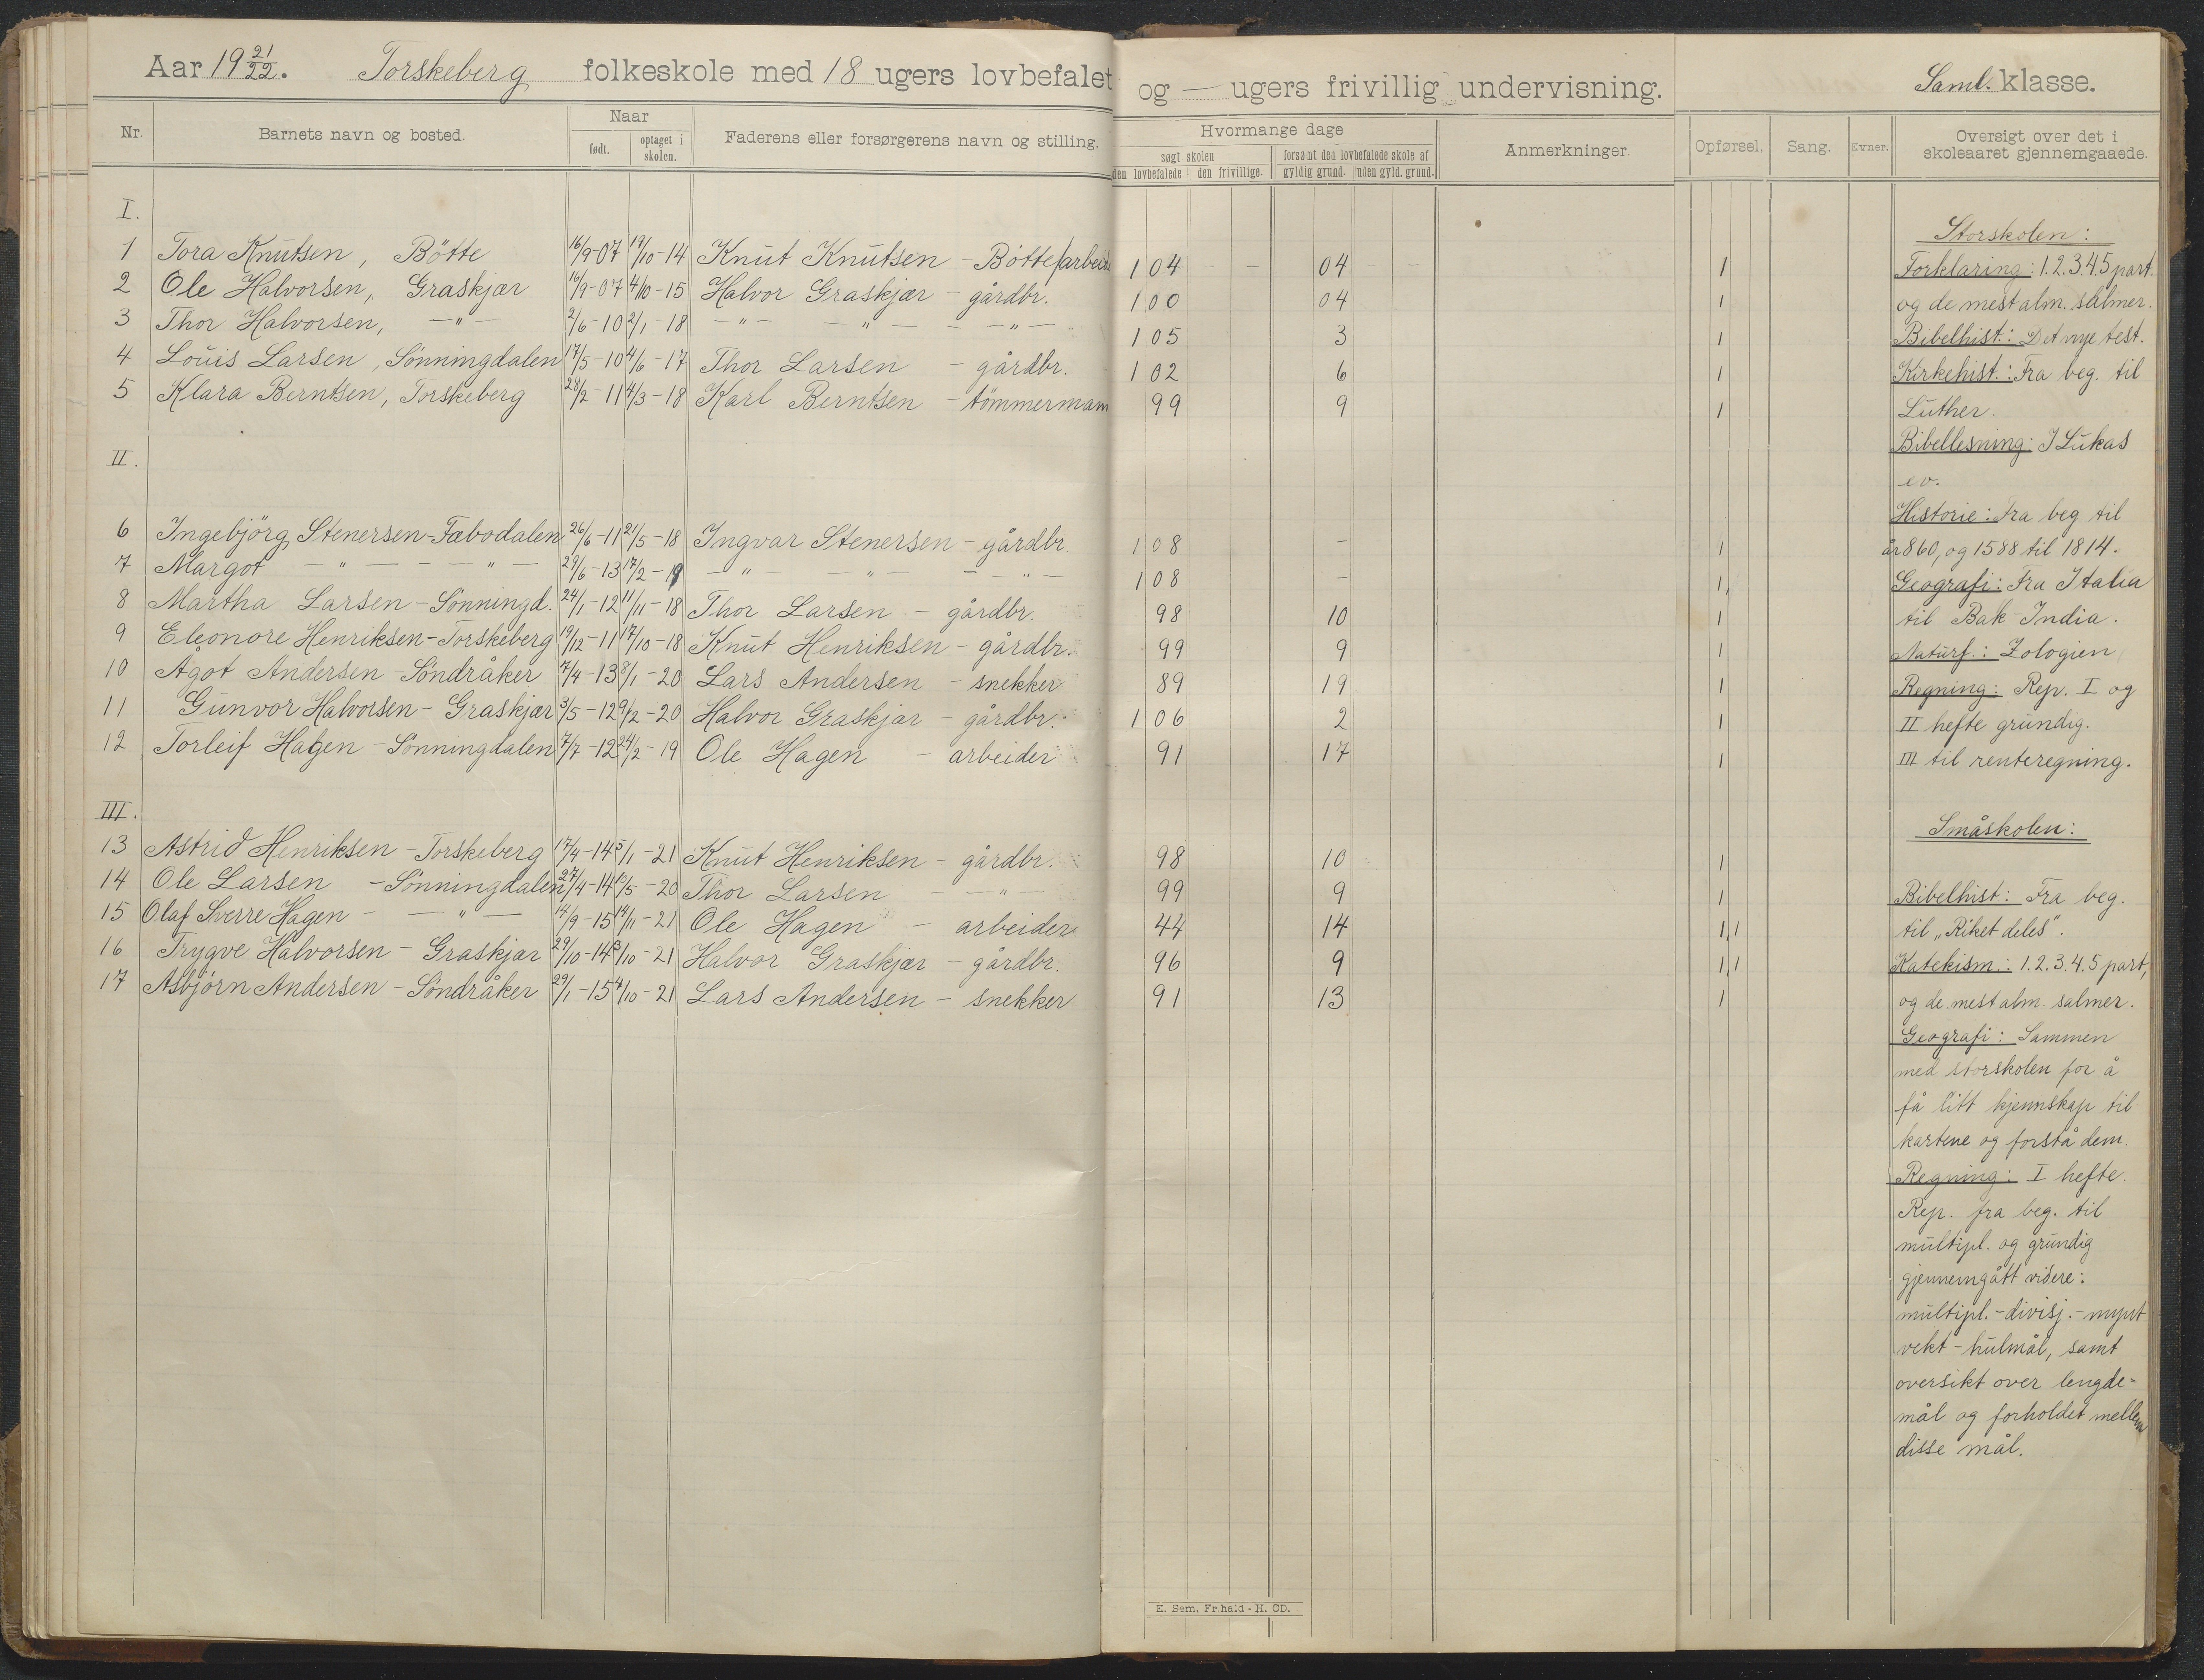 Aar 19 21/22. Torskeberg folkeskole med 18 ugers lovbefalet og — ugers frivillig undervisning. Saml. klasse.
Nr. Barnets navn og bosted. Naar Faderens eller forsørgerens navn og stilling. Hvormange dage Anmerkninger. Opførsel. Sang. Evner. Oversigt over det i
født. optaget i skolen. søgt skolen forsømt den lovbefalede skole af skoleaaret gjennemgaaede.
den lovbefalede den frivillige. gyldig grund. uden gyld. grund.
I.
1 Tora Knutsen, Bötte 16/9-07 19/10-14 Knut Knutsen - Bötte/arbeid 104 — — 04 — — 1
2 Ole Halvorsen, Graskjær 16/9-07 4/10-15 Halvor Graskjær - gårdbr. 100 04 1
3 Thor Halvorsen, —"— 2/6-10 2/1-18 —"— —"— —"— 105 3 1
4 Louis Larsen, Sönningdalen 17/5-10 4/6-17 Thor Larsen - gårdbr. 102 6 1
5 Klara Berntsen, Torskeberg 28/2-11 4/3-18 Karl Berntsen - tömmermann 99 9 1
II.
6 Ingebjörg Stenersen-Fæbodalen 26/6-11 21/5-18 Ingvar Stenersen - gårdbr. 108 — 1
7 Margot —"— —"— 29/6-13 17/2-19 —"— —"— —"— 108 — 1,
8 Martha Larsen - Sönningd. 24/1-12 11/11-18 Thor Larsen - gårdbr. 98 10 1
9 Eleonore Henriksen-Torskeberg 19/12-11 17/10-18 Knut Henriksen - gårdbr. 99 9 1
10 Ågot Andersen - Söndråker 7/4-13 8/1-20 Lars Andersen - snekker 89 19 1
11 Gunvor Halvorsen - Graskjær 3/5-12 9/2-20 Halvor Graskjær - gårdbr. 106 2 1
12 Torleif Hagen - Sönningdalen 7/7-12 24/2-19 Ole Hagen - arbeider 91 17 1
III.
13 Astrid Henriksen - Torskeberg 17/4-14 5/1-21 Knut Henriksen - gårdbr. 98 10 1
14 Ole Larsen - Sönningdalen 27/4-14 /5-20 Thor Larsen —"— 99 9 1
15 Olaf Sverre Hagen - —"— 14/9-15 14/11-21 Ole Hagen - arbeider 44 14 1,1
16 Trygve Halvorsen - Graskjær 29/10-14 3/10-21 Halvor Graskjær - gårdbr. 96 9 1,1
17 Asbjörn Andersen - Söndråker 29/1-15 4/10-21 Lars Andersen - snekker 91 13 1
Storskolen:
Forklaring: 1.2.3.4.5 part.
og de mest alm. salmer.
Bibelhist.: Det nye test.
Kirkehist.: Fra beg. til
Luther.
Bibellesning: I Lukas
ev.
Historie: Fra beg til
år 860, og 1588 til 1814.
Geografi: Fra Italia
til Bak-India.
Naturf.: Zologien
Regning: Rep. I og
II hefte grundig.
III til renteregning.
Småskolen:
Bibelhist: Fra beg.
til „Riket deles".
Katekism.: 1.2.3.4.5 part,
og de mest alm. salmer.
Geografi: Sammen
med storskolen for å
få litt kjennskap til
kartene og forstå dem.
Regning: I hefte.
Rep. fra beg. til
multipl. og grundig
gjennemgått videre:
multipl.-divisj.-mynt
vekt-hulmål, samt
oversikt over lengde-
mål og forholdet mellem
disse mål.
E. Sem, Fr.hald - H. CD.